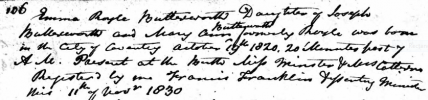 106 Emma Royle Butterworth Daughter of Joseph
Butterworth
Butterworth and Mary Ann formerly Royle was born
in the City of Coventry October 19th 1820. 20 Minutes past 4
A.M. Present at the Birth Miss Minster & Mrs
Registered by me Francis Franklin Minister
this 11th of Novr 1830